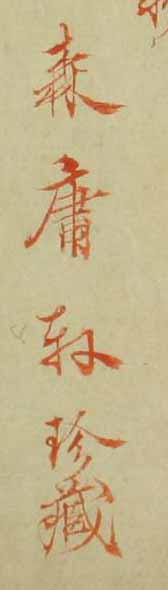 森庸軒珍藏